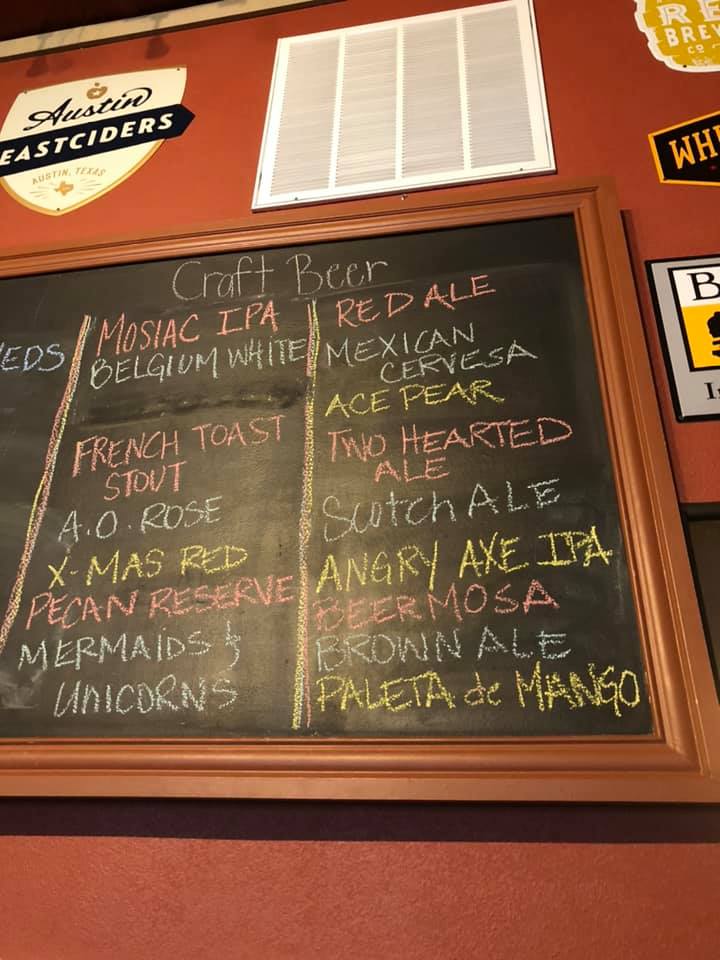 Austin
EASTCIDERS
AUSTIN, TEXAS
RE
BREW
CO
WH
B
I
Craft Beer
EDS
MOSIAC IPA
BELGIUM WHITE
FRENCH TOAST
STOUT
A.O. ROSE
X-MAS RED
PECAN RESERVE
MERMAIDS &
UNICORNS
RED ALE
MEXICAN
CERVESA
ACE PEAR
TWO HEARTED
ALE
Scotch ALE
ANGRY AXE IPA
BEERMOSA
BROWN ALE
PALETA de MANGO